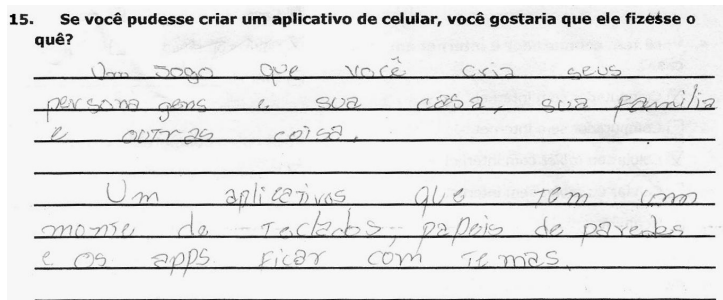 15. Se você pudesse criar um aplicativo de celular, você gostaria que ele fizesse o
quê?
Um jogo que você cria seus
personagens e sua casa, sua família
e outras coisa.
Um aplicativos que tem um
monte de teclados, papeis de paredes
e os apps ficar com temas.